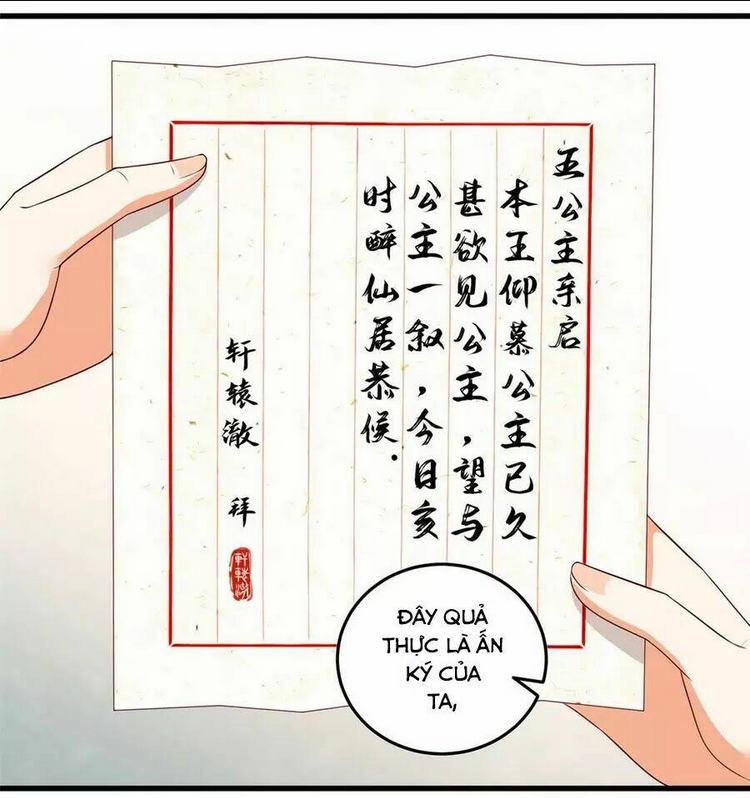 五公主亲启
本王仰慕公主已久
甚欲见公主，望与
公主一叙，今日亥
时醉仙居恭候.
轩辕澈 拜
ĐÂY QUẢ
THỰC LÀ ẤN
KÝ CỦA
TA,